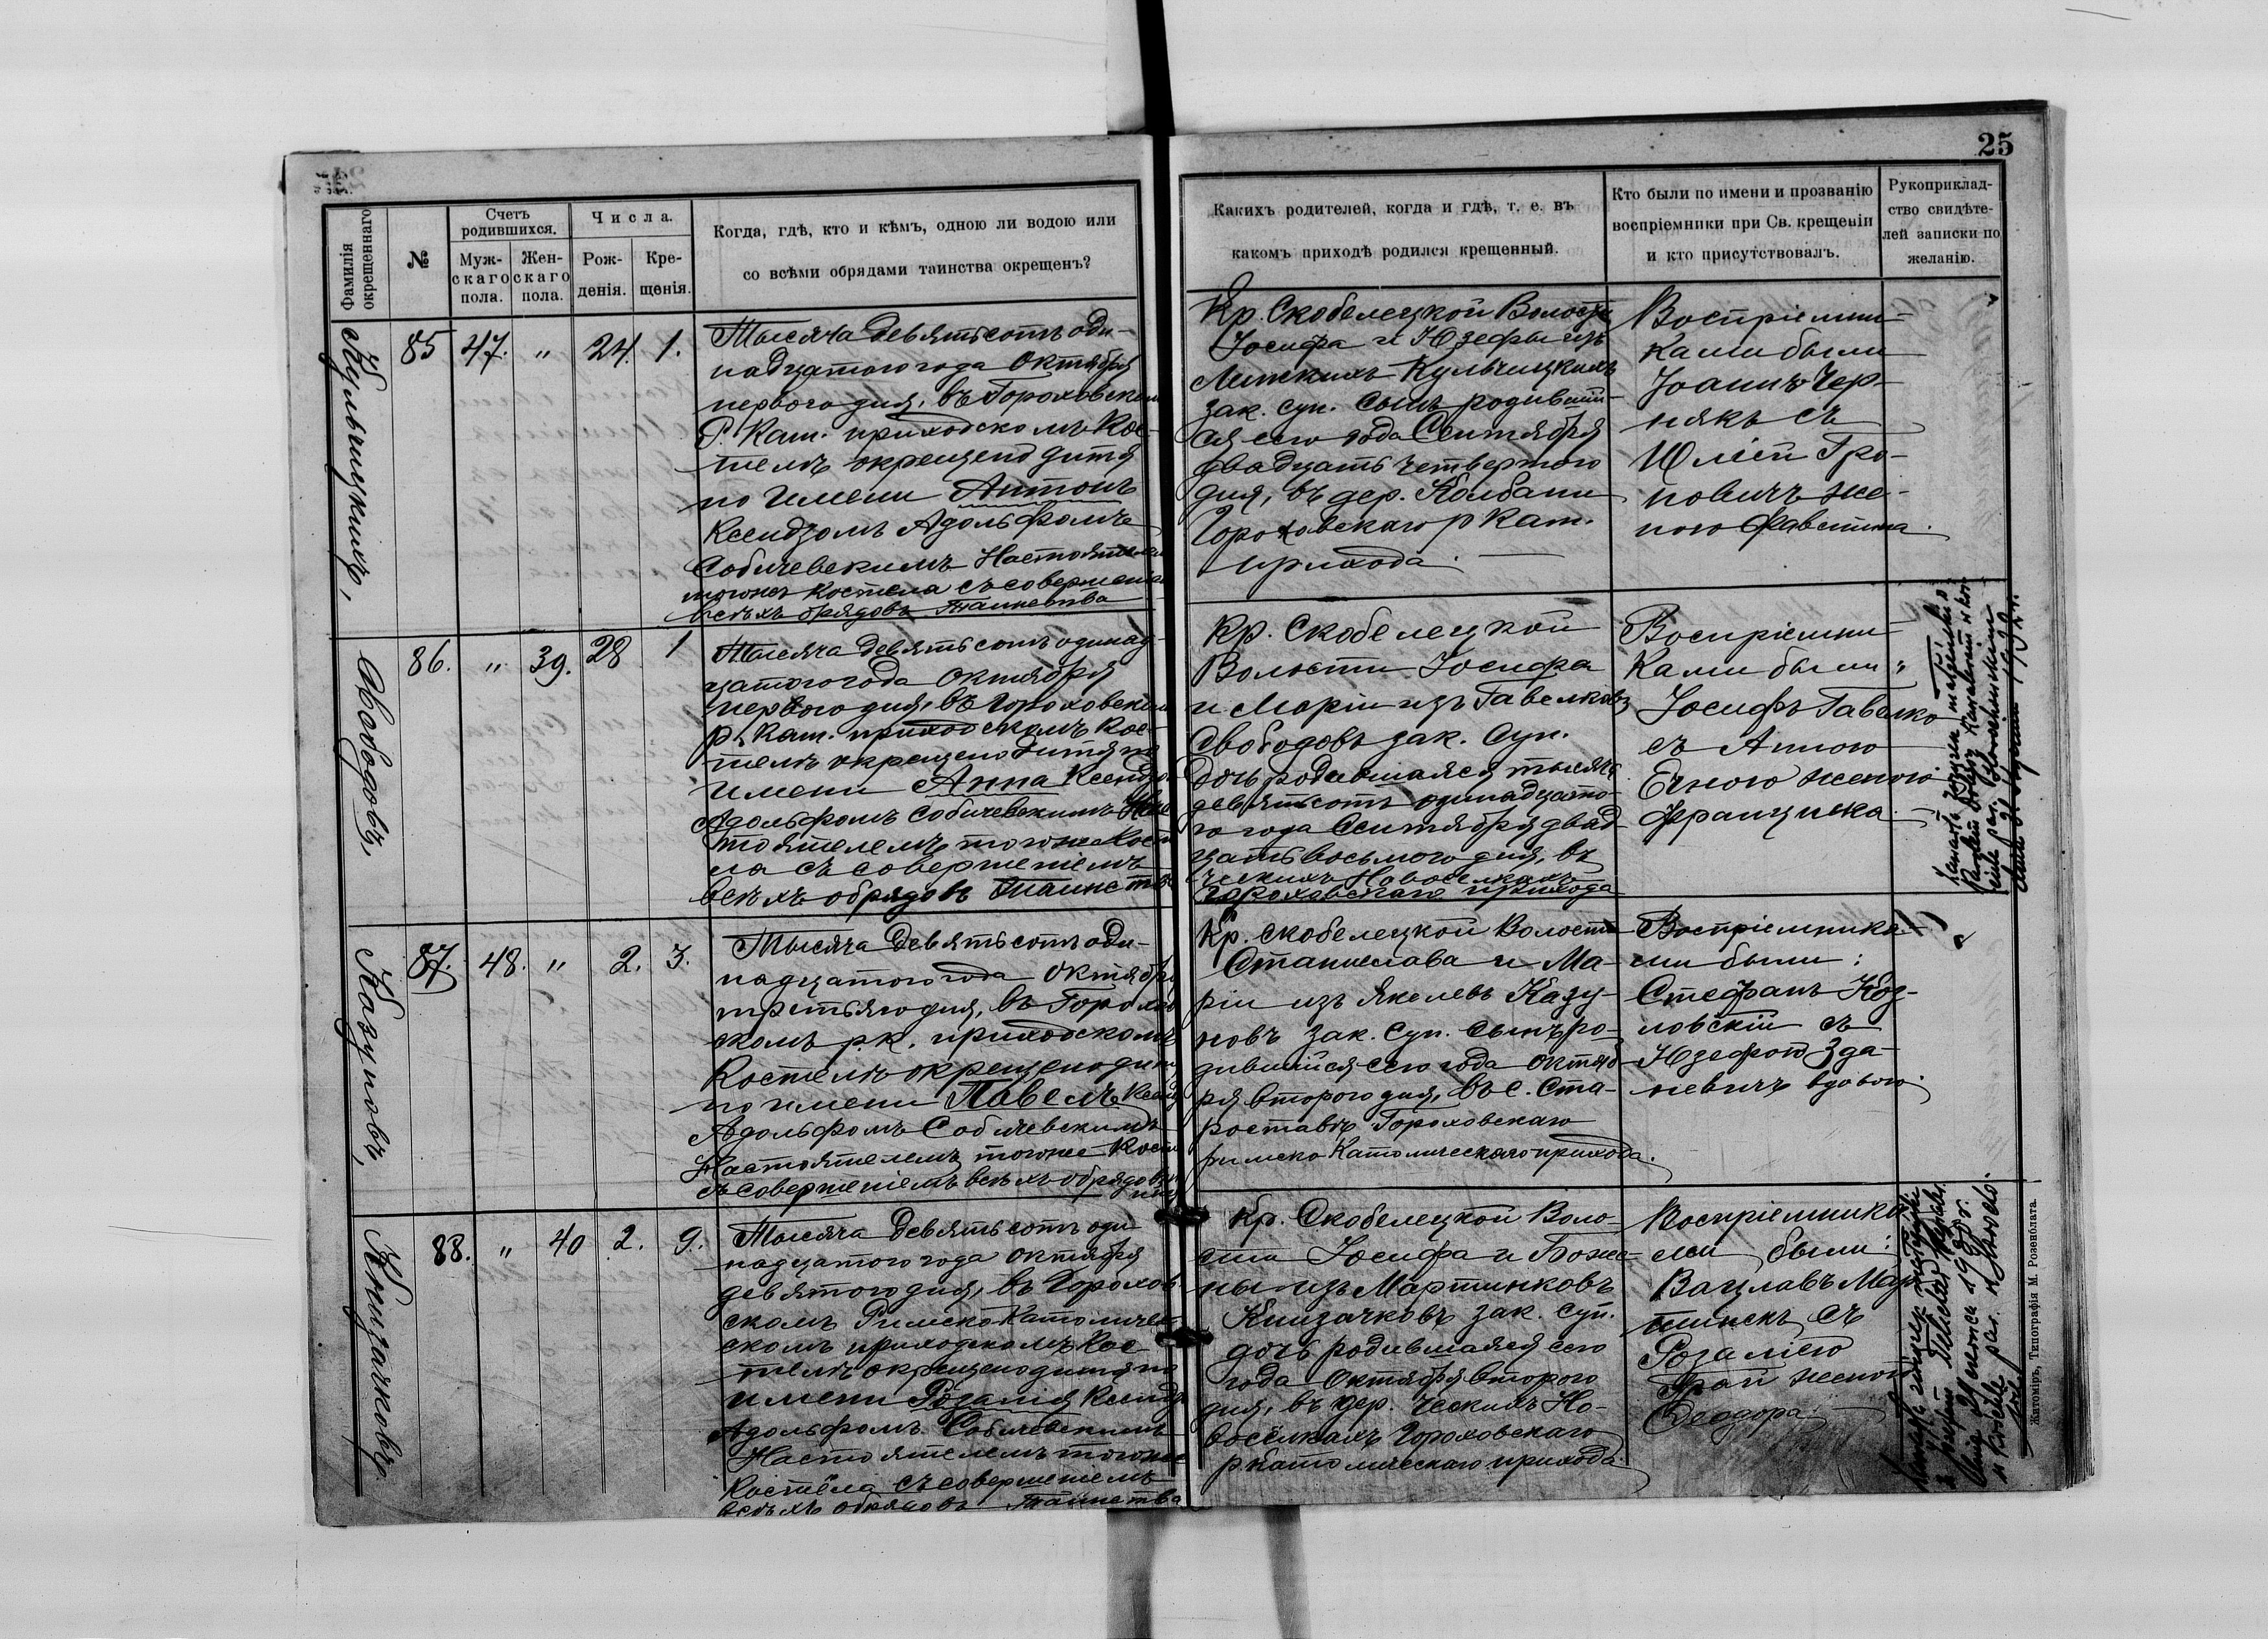 25
Фамилія окрещеннаго
№
Счетъ родившихся.
Муж-
скаго
пола.
Жен-
скаго
пола.
Числа.
Рож-
денія.
Кре-
щенія.
Когда, гдѣ, кто и кѣмъ, одною ли водою или
со всѣми обрядами таинства окрещенъ?
Какихъ родителей, когда и гдѣ, т. е. въ
какомъ приходѣ родился крещенный.
Кто были по имени и прозванію
воспріемники при Св. крещеніи
и кто присутствовалъ.
Рукоприклад-
ство свидѣте-
лей записки по
желанію.
Кульчицкихъ,
85 47. " 24. 1.
Тысяча девятьсотъ оди-
надцатого года Октября
первого дня, въ Гороховском
Р. Кат. приходскомъ Кос-
телѣ окрещено дитя
по имени Антонъ
Ксендзомъ Адольфомъ
Собичевскимъ Настоятелем
тогоже Костела съ совершениемъ
всѣхъ обрядовъ Таинства
Кр. Скобелецкой Волости
Іосифа и Юзефы изъ
Кульчицкихъ
зак. суп. сынъ родивший-
ся сего года Сентября
двадцать четвертого
дня, въ дер. Колбани
Гороховскаго р Кат.
прихода.
Воспріемни-
ками были
Іоаннъ Чер-
някъ съ
Юліей Гро-
новичъ же-
ною Фавстина.
Свободовъ,
86. " 39. 28 1
Тысяча девятьсотъ одинад-
цатого года Октября
первого дня, въ Гороховском
р. Кат. приходскомъ Кос-
телѣ окрещено дитя по
имени Анна Ксендзо
Адольфомъ Собичевскимъ Нас
тоятелемъ тогоже Косте
ла съ совершеніемъ
всѣхъ обрядовъ Таинства
Кр. Скобелецкой
Волости Іосифа
и Маріи изъ Гавелковъ
Свободовъ зак. суп.
дочь родившаяся тысяча
девятьсотъ одинадцато-
го года Сентября двад-
цать восьмого дня, въ
Ческихъ Новоселкахъ
Гороховскаго прихода
Воспріемни-
ками были "
Іосифъ Гавелко
съ Анною
женою
Францишка.
1932 r.
Казуновъ,
87. 48. " 2. 3.
Тысяча девятьсотъ оди-
надцатого года Октября
третьяго дня, въ Горохов
скомъ р. к. приходскомъ
Костелѣ окрещено дитя
по имени Павелъ Ксендз
Адольфомъ Собичевскимъ
Настоятелемъ тогоже Косте
съ совершеніемъ всѣхъ обрядовъ
Кр. Скобелецкой Волости
Станислава и Ма-
ріи изъ Якелевъ Казу-
новъ зак. суп. сынъ ро-
дившійся сего года октяб-
ря второго дня, въ с. Ста-
роставъ Гороховскаго
римско Католическаго прихода.
Воспріемника-
ми были:
Стефанъ Коз-
ловскій съ
Юзефой Зда-
невичъ вдовою.
Книзачковъ.
88. " 40 2. 9.
Тысяча девятьсотъ оди
надцатого года октября
девятого дня, въ Горохов-
скомъ Римско Католичес-
скомъ приходскомъ Кос
телѣ окрещено дитя по
имени Розалія Ксендз
Адольфомъ Собичевскимъ
Настоятелемъ тогоже
Костела съ совершеніемъ
всѣхъ обрядовъ Таинства
Кр. Скобелецкой Воло-
сти Іосифа и Боже-
ны изъ Мартинковъ
Книзачковъ зак. суп.
дочь родившаяся сего
года Октября второго
дня, въ дер. Ческихъ Но-
воселкахъ Гороховскаго
р католическаго прихода
Воспріемника-
ми были:
Вацлавъ Мар
тинекъ съ
Розаліею
женой
Феодора
Житоміръ, Типографія М. Розенблата.